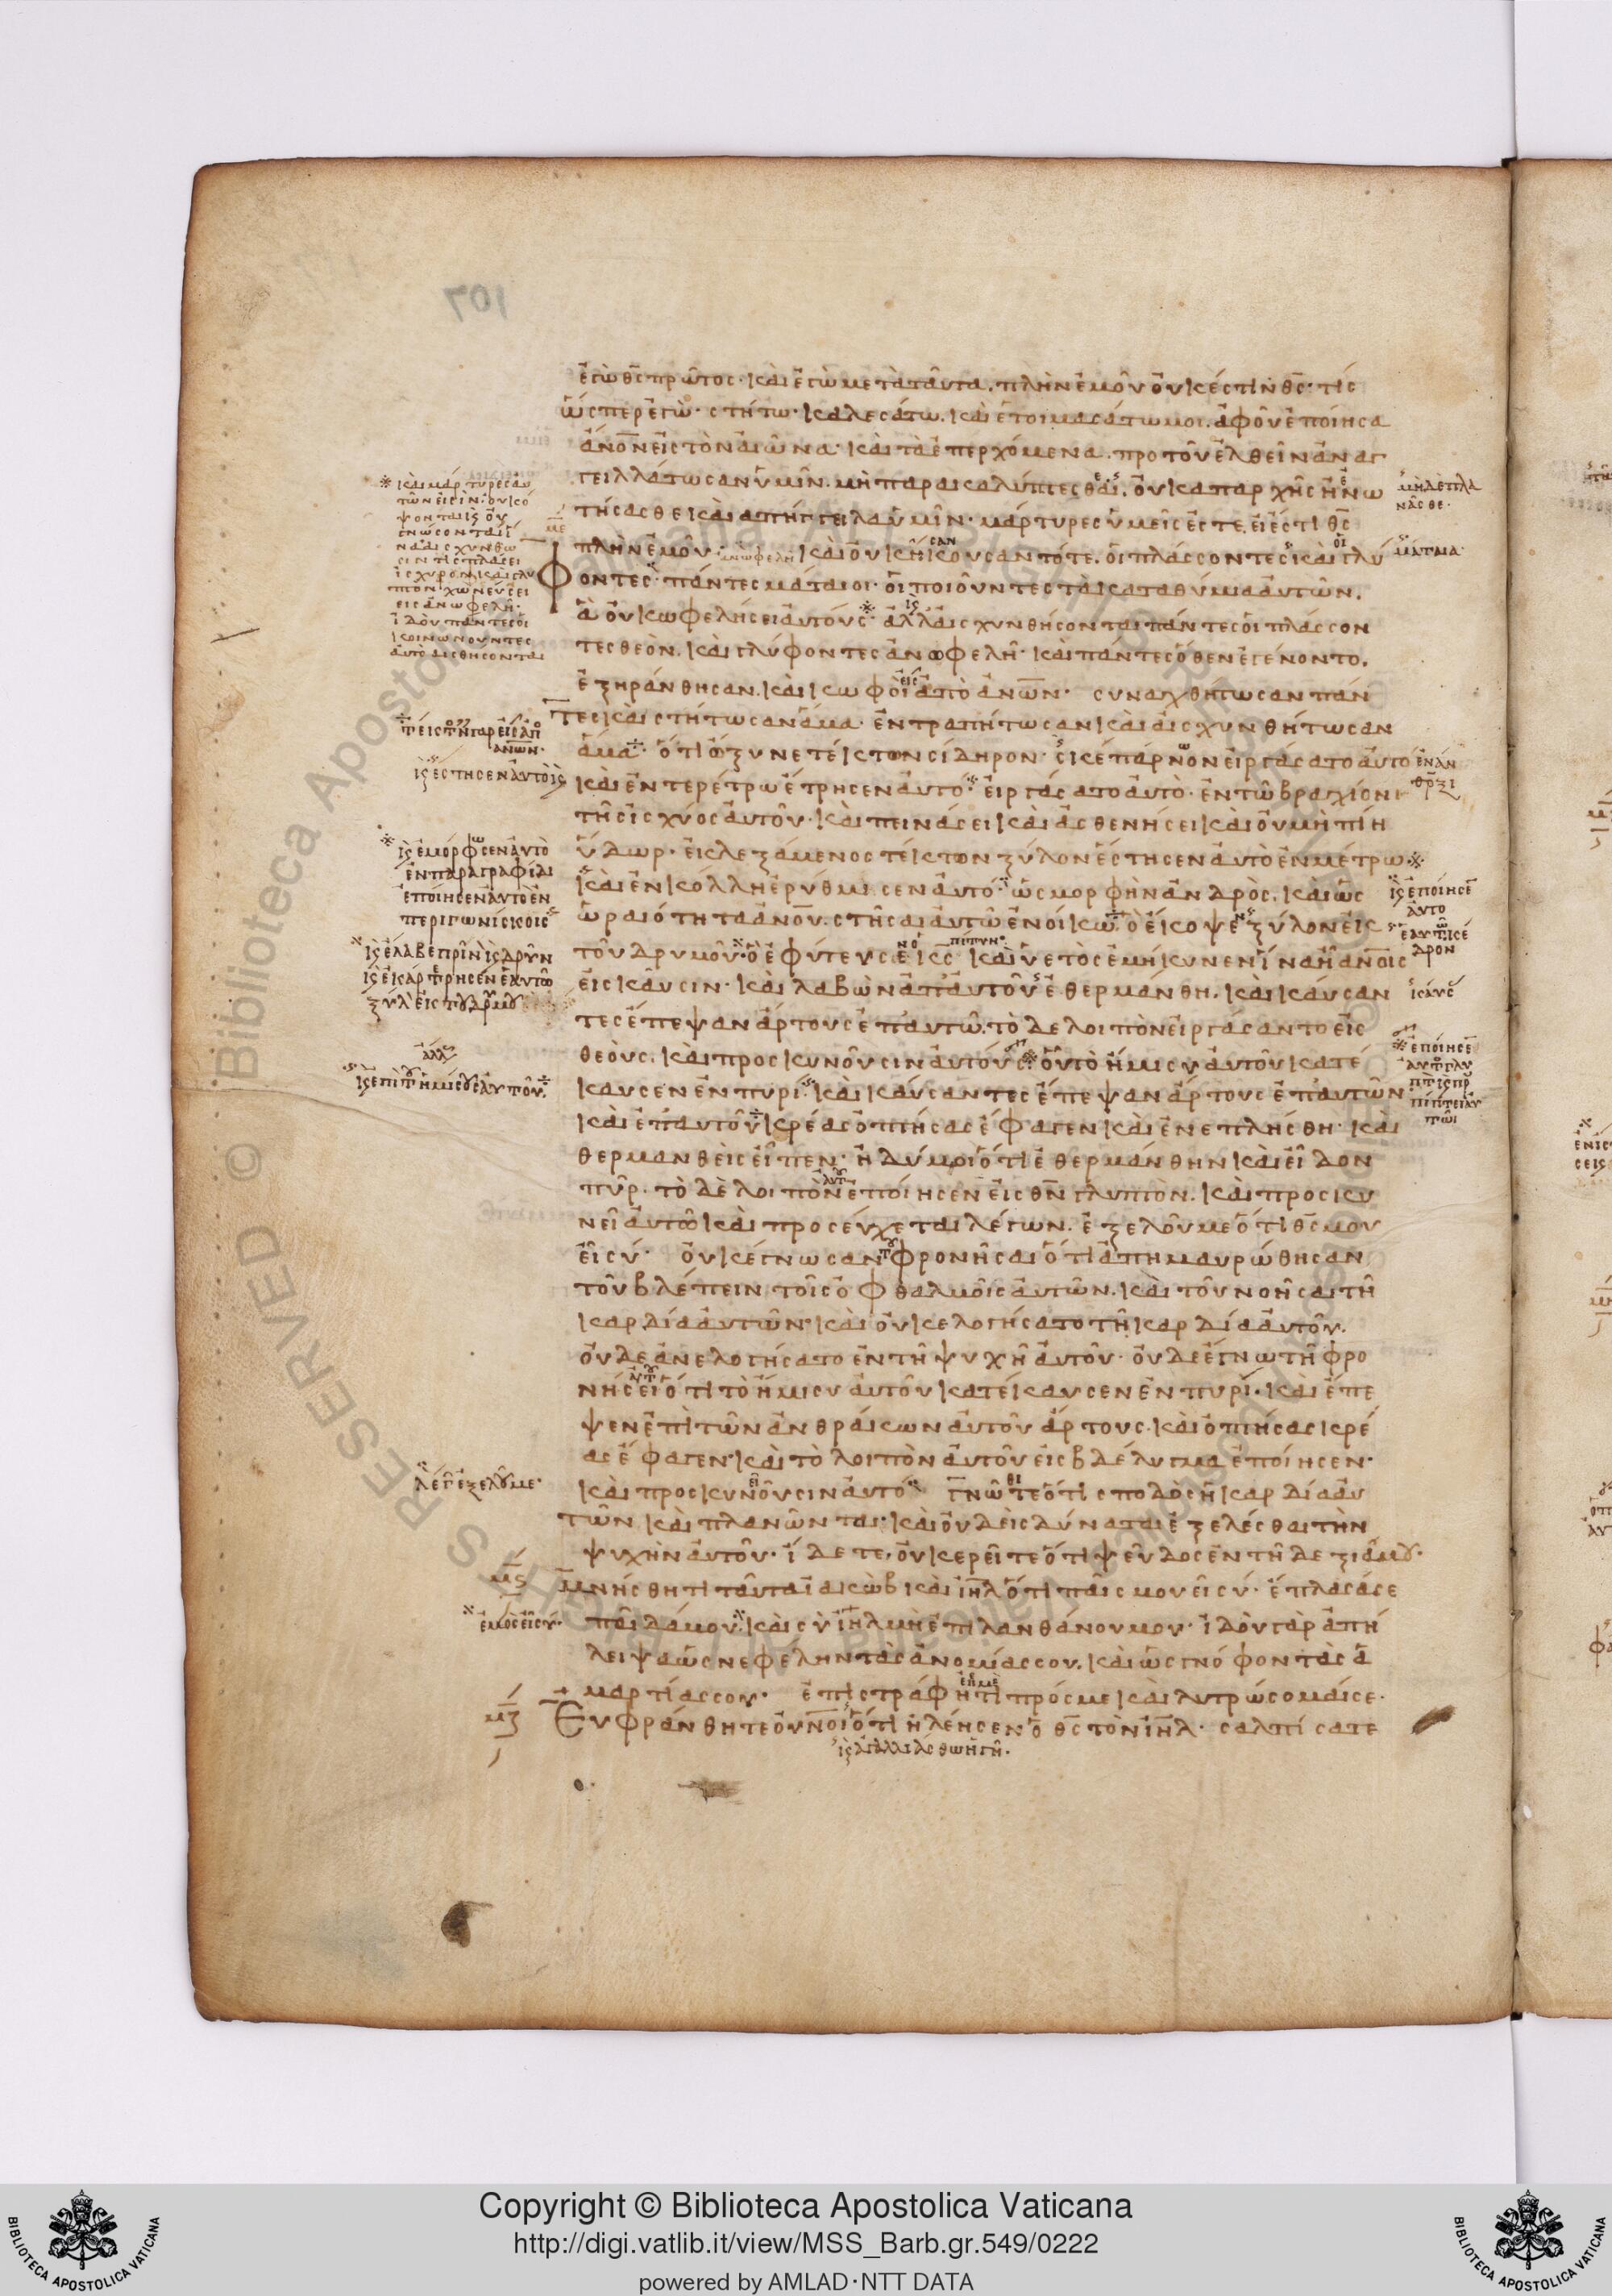 ἐγὼ θ̅ς̅ πρῶτος· καὶ ἐγὼ μετὰ ταῦτα. πλὴν ἐμοῦ οὐκ ἔστιν θ̅ς̅· τίς
ὥσπερ ἐγώ· στήτω· καλεσάτω. καὶ ἑτοιμασάτω μοι. ἀφ οὗ ἐποίησα
ἀ̅ν̅ο̅ν̅ εἰς τὸν αἰῶνα· καὶ τὰ ἐπερχόμενα. προ τοῦ ἐλθεῖν ἀναγ
γειλλάτωσαν ὑμῖν. μὴ παρακαλύπτεσθαι. οὐκ απαρχῆς ἠνω
τήσασθε καὶ απήγγειλα ὑμῖν· μάρτυρες ὑμεῖς ἐστε. εἰ ἔστι θ̅ς̅
πλὴν ἐμοῦ· καὶ οὐκ ἤκουσαν τότε. οἱ πλάσσοντες καὶ γλύ
Φοντες· πάντες μάταιοι· οἱ ποιοῦντες τὰ καταθύμια αὐτῶν.
ἃ οὐκ ωφελήσει αὐτούς· ἀλλ' αἰσχυνθήσονται πάντες οἱ πλάσσον
τες θεὸν. καὶ γλύφοντες ἀνωφελῆ· καὶ πάντες ὅθεν ἐγένοντο.
ἐξηράνθησαν. καὶ κωφοὶ ἀπὸ ἀ̅ν̅ω̅ν̅· συναχθήτωσαν πάν
τες καὶ στήτωσαν ἅμα· ἐντραπήτωσαν καὶ αἰσχυνθήτωσαν
ἅμα· ὅτι ὤξυνε τέκτων σίδηρον· σκεπάρνον εἰργάσατο αὐτό
καὶ ἐν τερέτρω ἔτρησεν αὐτό· εἰργάσατο αὐτὸ· ἐν τῶ βραχίονι
τῆς ἰσχύος αὐτοῦ· καὶ πεινάσει καὶ ἀσθενήσει καὶ οὐ μὴ πίη
ὕδωρ· ἐκλεξάμενος τέκτων ξύλον ἔστησεν αὐτὸ ἐν μέτρω
καὶ ἐν κόλλη ἐρύθμισεν αὐτό· ὡς μορφὴν ἀνδρὸς. καὶ ὡς
ὡραιότητα ἀ̅ν̅ο̅υ̅. στῆσαι αὐτῶ ἐν οίκω. ὃ ἔκοψε ξύλον ἐκ
τοῦ δρυμοῦ· ὃ ἐφύτευσε κ̅ς̅ καὶ ὑετὸς ἐμήκυνεν ἵνα ἦ ἀ̅ν̅ο̅ι̅ς̅
εἰς καῦσιν· καὶ λαβὼν ἀπ' αὐτοῦ ἐθερμάνθη. καὶ καύσαν
τες ἔπεψαν ἄρτους ἐπ' αυτῶ. τὸ δε λοιπὸν εἰργάσαντο εἰς
θεὸυς. καὶ προσκυνοῦσιν αὐτούς· οὗ τὸ ἥμισυ αὐτοῦ κατέ
καυσεν ἐν πυρι· καὶ καύσαντες ἔπεψαν ἄρτους ἐπ' αυτῶν·
καὶ ἐπ' αυτοῦ κρέας ὀπτήσας ἔφαγεν καὶ ἐνεπλήσθη· καὶ
θερμανθεὶς εἶπεν· ἡδύ μοι ὅτι ἐθερμάνθην καὶ εἶδον
πῦρ. τὸ δὲ λοιπὸν ἐποίησεν εἰς θ̅ν̅ γλυπτόν. καὶ προσκυ
νεῖ αὐτῶ καὶ προσεύχεται λέγων. ἐξελοῦ με ὅτι θ̅ς̅ μου
εἶ σύ· οὐκ ἔγνωσαν φρονῆσαι ὅτι ἀπημαυρώθησαν
τοῦ βλέπειν τοῖς ὀφθαλμοῖς αὐτῶν. καὶ τοῦ νοῆσαι τῆ
καρδία αὐτῶν· καὶ οὐκ ελογήσατο τῆ καρδία αὐτοῦ.
οὐδε ἀνελογήσατο ἐν τῆ ψυχῆ αὐτοῦ· οὐδε ἔγνω τῆ φρο
νήσει ὅτι τὸ ἥμισυ αὐτοῦ κατέκαυσεν ἐν πυρί· καὶ ἔπε
ψεν ἐπὶ τῶν ἀνθράκων αὐτοῦ ἄρτους. καὶ ὀπτήσας κρέ
ας ἔφαγεν· καὶ τὸ λοιπὸν αὐτοῦ εἰς βδέλυγμα ἐποίησεν·
καὶ προσκυνοῦσιν αὐτό· γνῶτε ὅτι σποδὸς ἡ καρδία αὐ
τῶν καὶ πλανῶνται· καὶ οὐδεὶς δύναται ἐξελέσθαι τὴν
ψυχὴν αὐτοῦ· ἴδετε. οὐκ ερεῖτε ὅτι ψεῦδος ἐν τῆ δεξιᾶ μου·
μνήσθητι ταῦτα ἰακὼβ καὶ ἰ̅η̅λ̅ ὅτι παῖς μου εἶ σύ· ἔπλασά σε
παῖδά μου. καὶ σὺ ἰ̅η̅λ̅ μὴ ἐπιλανθάνου μου· ἰδοὺ γὰρ ἀπή
λειψα ὡς νεφέλην τὰς ἀνομίας σου. καὶ ὡς γνόφον τὰς ἁ
μαρτίας σου· ἐπιστράφητι πρός με καὶ λυτρώσομαί σε·
Ευφράνθητε οὐ̅ν̅ο̅ι̅ ὅτι ἠλέησεν ὁ θ̅ς̅ τὸν ἰ̅η̅λ̅· σαλπίσατε
καὶ μάρτυρες αυ
τῶν εἰσὶν· οὐκ ό
ψονται κ οὐ
γνώσονται ἵ
να αἰσχυνθῶ
σιν τίς πλάσει
ἰσχυρὸν καὶ γλυ
πτὸν χωνεύσει
εις ἀνωφελῆ·
ἰδοὺ πάντες οἱ
κοινωνουντες
κ ἐμόρφωσεν αὐτὸ
ἐν παραγραφίδι
ἐποίησεν αὐτὸ ἐν
περιγωνίσκοις
μ̅ε̅
μ̅ς̅
ἐμὸς εἶ σύ·
μ̅ζ̅
Copyright © Biblioteca Apostolica Vaticana
http://digi.vatlib.it/view/MSS_Barb.gr.549/0222
powered by AMLAD·NTT DATA
BIBLIOTECA APOSTOLICA VATICANA
BIBLIOTECA APOSTOLICA VATICANA